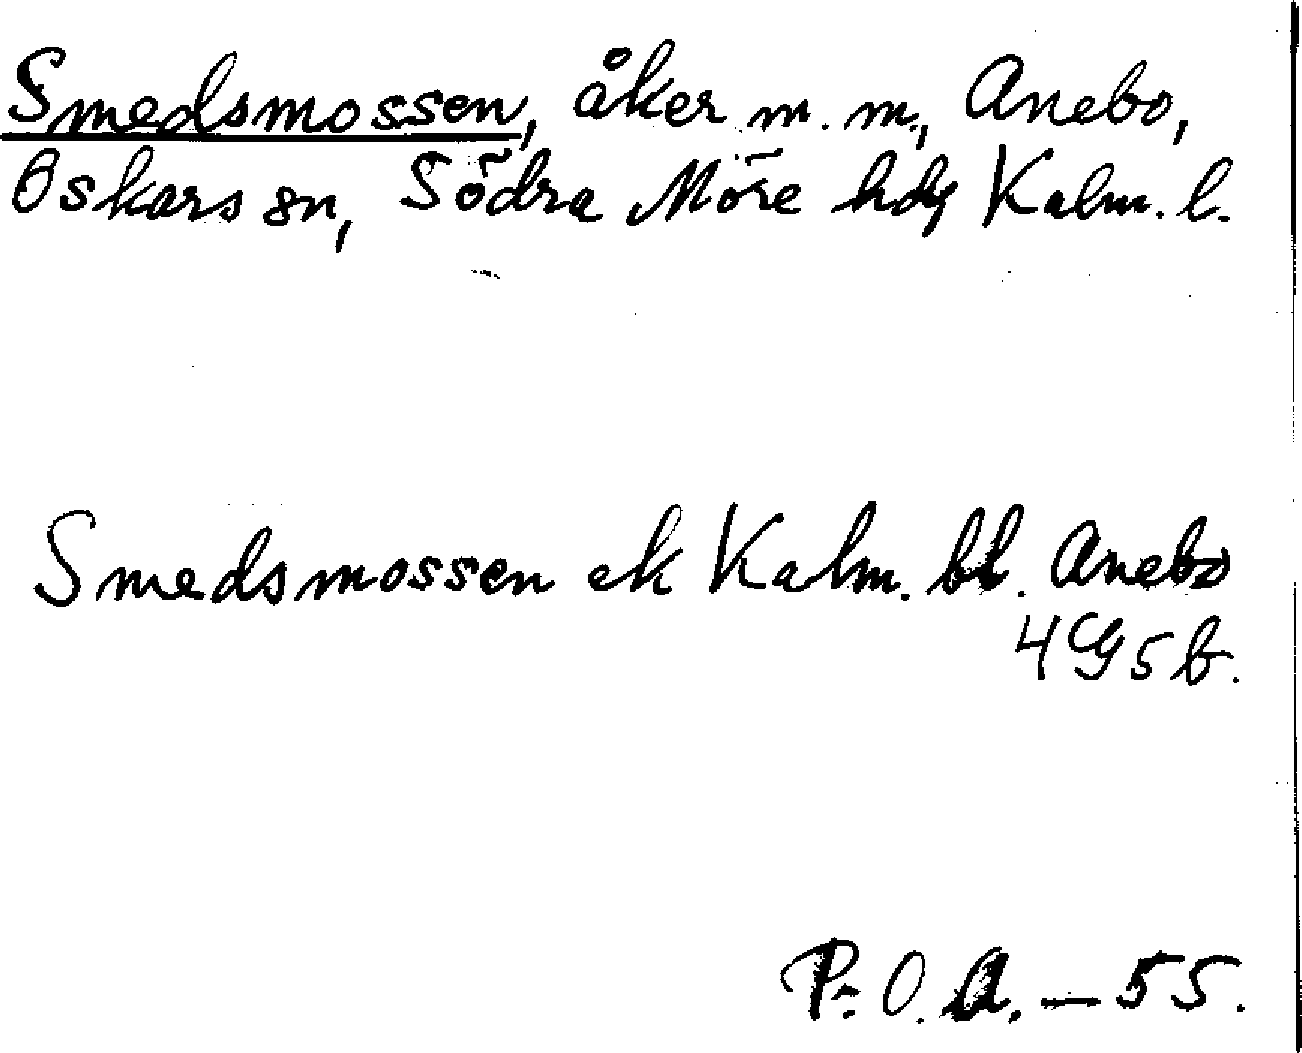 Smedsmossen, åker m. m., Anebo,
Oskars sn, Södra Möre hdg Kalm. l.
Smedsmossen ek Kalm. bl. Anebo
4G5b.
P.O.A. — 55.